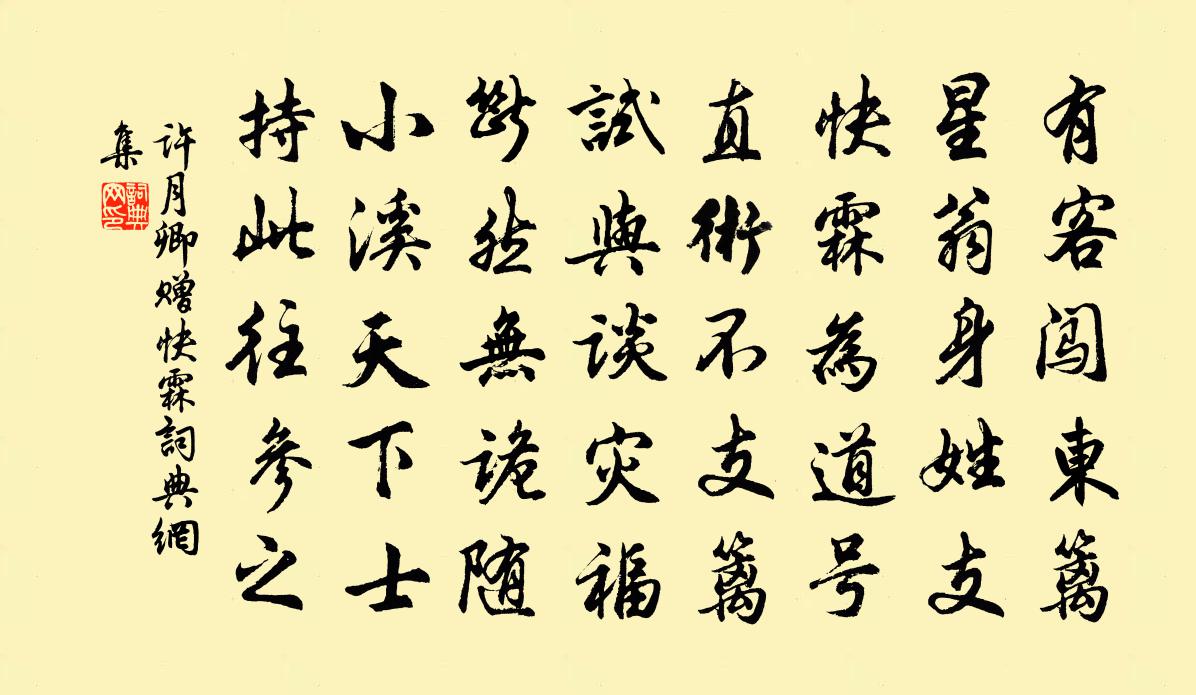 有客闯東篱
星翁身姓支
快霖為道号
直術不支篱
試與談灾福
斷然無詭随
小溪天下士
持此往參之
許月卿赠快霖詞典網
集
詞典
网印